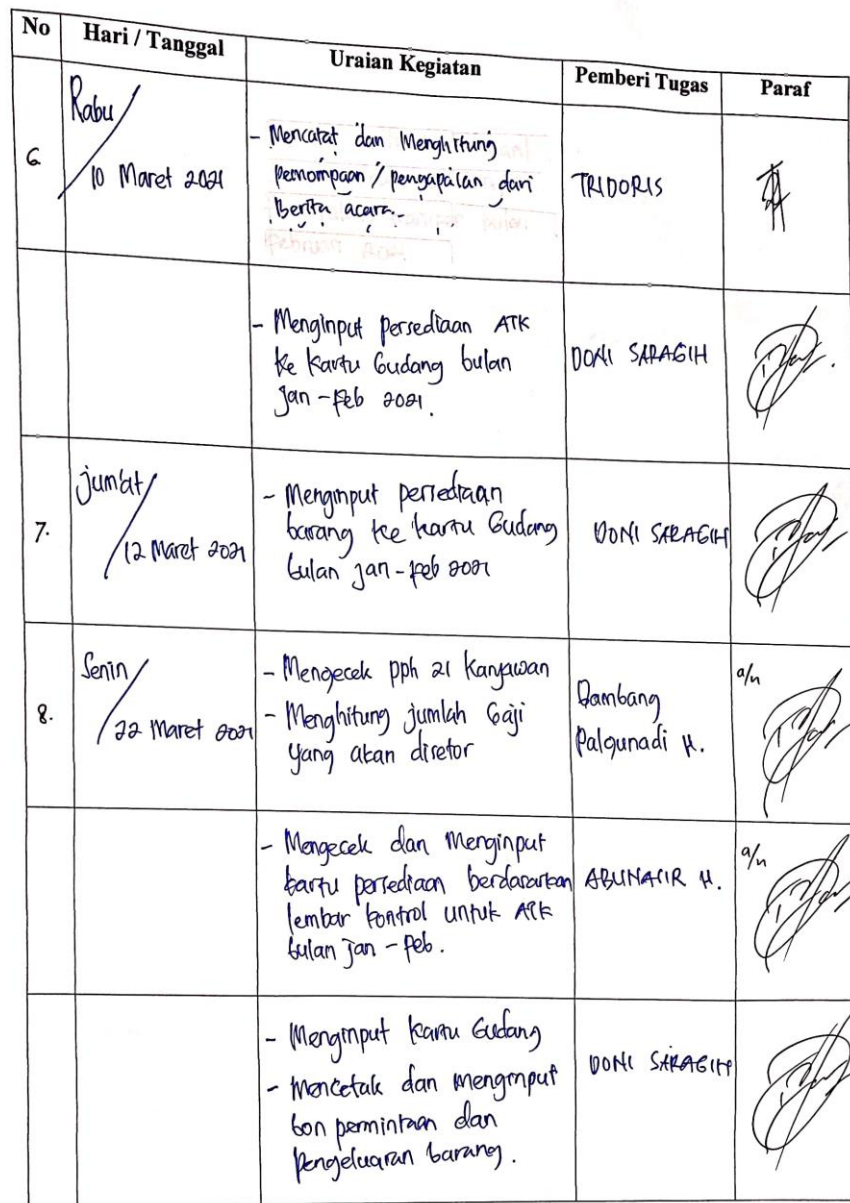 No Hari / Tanggal Uraian Kegiatan Pemberi Tugas Paraf
6. Rabu / 10 Maret 2021
- Mencatat dan Menghitung
pemompaan / pengapalan dari
Berita acara.
TRIDORIS
- Menginput persediaan ATK
ke Kartu Gudang bulan
Jan - Feb 2021.
DONI SARAGIH
7. Jum'at / 12 Maret 2021
- Menginput persediaan
barang ke kartu Gudang
bulan Jan - Feb 2021
DONI SARAGIH
8. Senin / 22 Maret 2021
- Mengecek pph 21 Karyawan
- Menghitung jumlah Gaji
yang akan disetor
Bambang
Palgunadi H.
a/n
- Mengecek dan Menginput
kartu persediaan berdasarkan
lembar kontrol untuk ATK
bulan Jan - Feb.
ABUNASIR H.
a/n
- Menginput Kartu Gudang
- Mencetak dan menginput
bon permintaan dan
Pengeluaran barang.
DONI SARAGIH